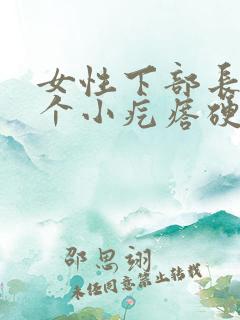 女性下部长
个小疙瘩硬
邵思翊
未经同意禁止转载